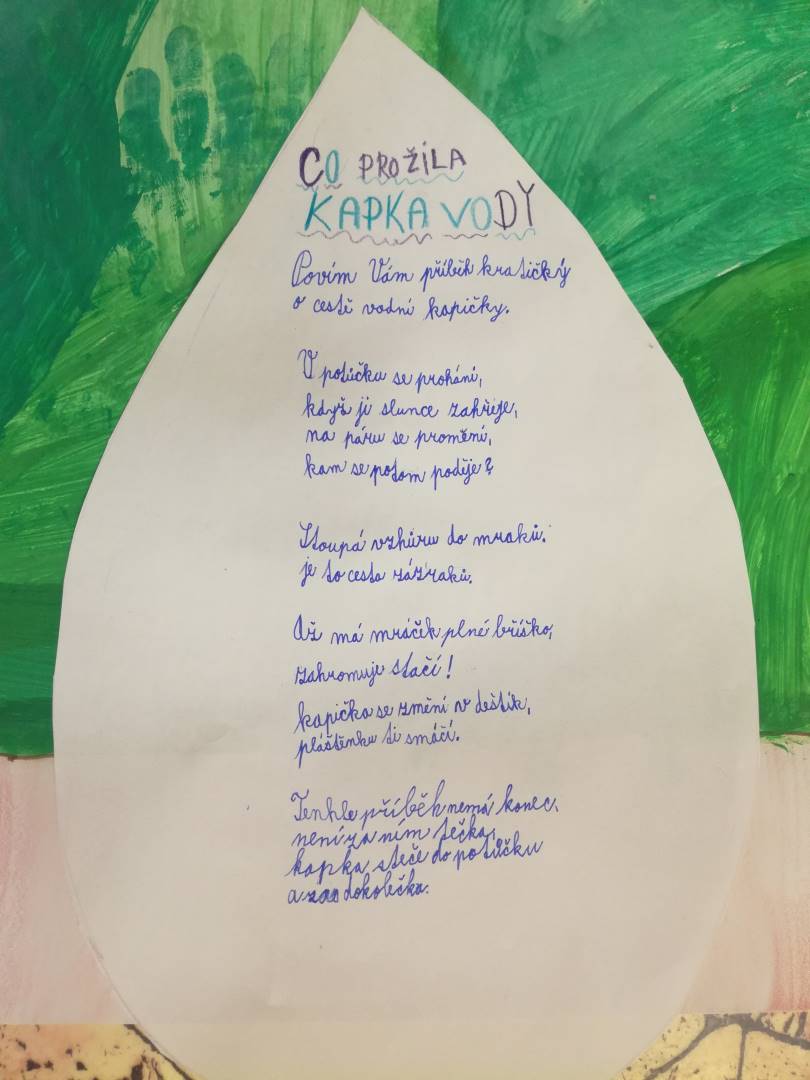 CO PROŽILA
KAPKA VODY
Povím Vám příběh kratičký
o cestě vodní kapičky.
V potůčku se prohání,
když ji slunce zahřeje,
na páru se promění,
kam se potom poděje?
Stoupá vzhůru do mraků.
je to cesta zázraků.
Až má mráček plné bříško,
zahromuje stačí!
kapička se změní v deštík,
pláštěnku ti smáčí.
Tenhle příběh nemá konec.
není za ním tečka,
kapka steče do potůčku
a zas dokolečka.